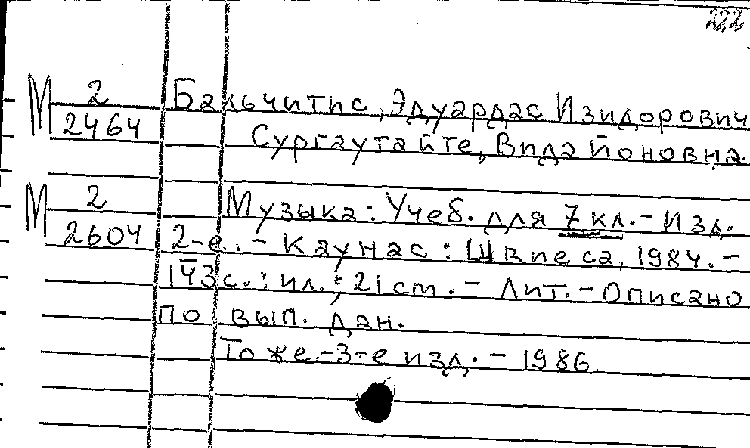 222
М 2 Бальчитис, Эдуардас Изидорович
2464 Сургаутайте, Вида Йоновна.
М 2 Музыка: Учеб. для 7 кл. - Изд.
2604 2-е. - Каунас: Швиеса, 1984. -
143 с.: ил.; 21 см. - Лит. - Описано
по вып. дан.
То же - 3-е изд. - 1986